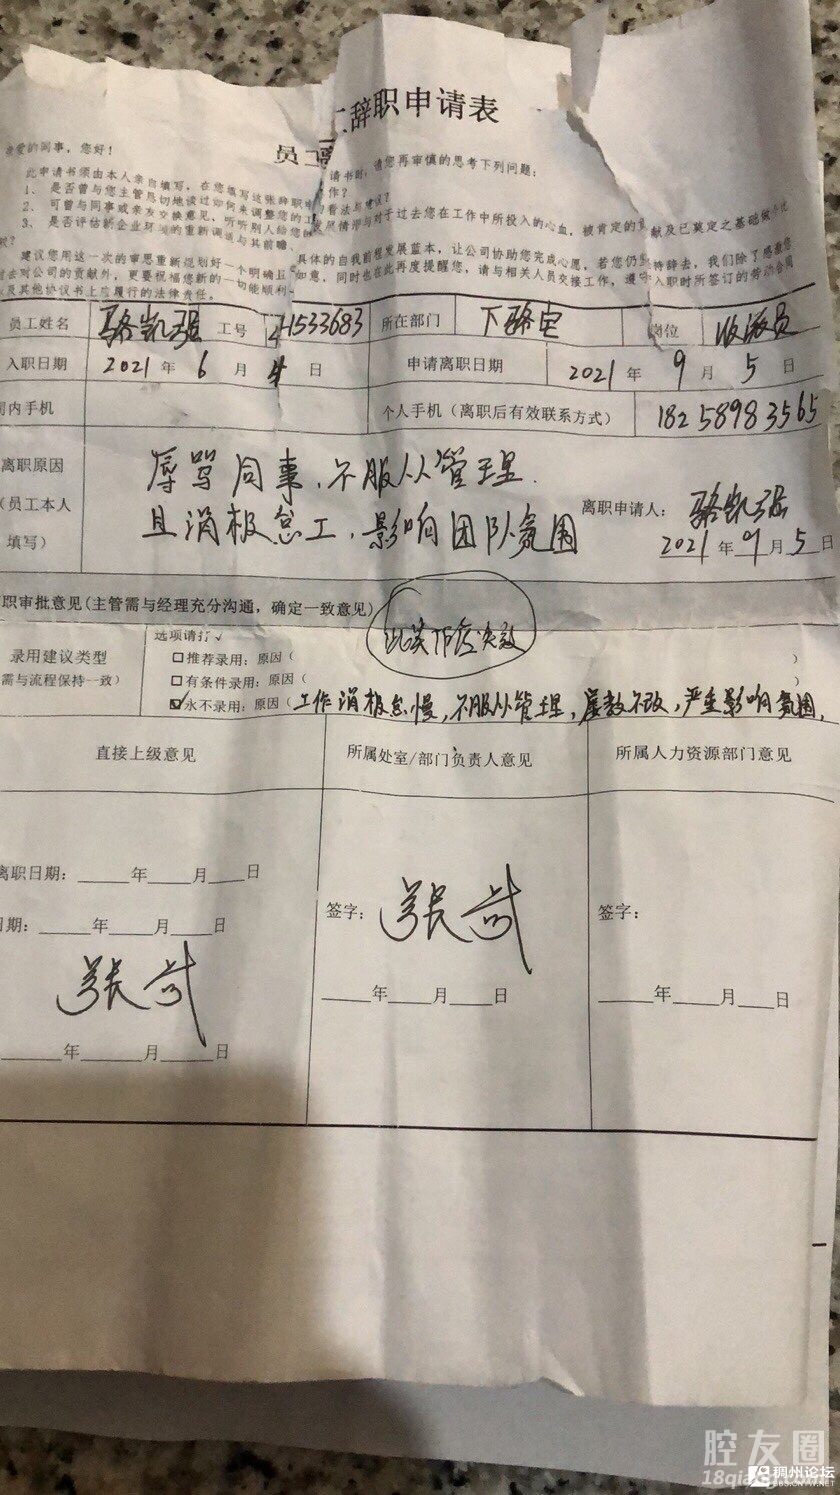 工辞职申请表
员工
亲爱的同事，您好！
此申请书须由本人亲自填写，在您填写这张辞职申请书时，请您再审慎的思考下列问题：
1、是否曾与您主管恳切地谈过如何来调整您的工作？
2、可曾与同事或亲友交换意见、听听别人给您的看法与建议？
3、是否评估新企业环境的重新调适与其前瞻、发展情形与对于过去您在工作中所投入的心血，被肯定的贡献及已奠定之基础做个比
较？
建议您用这一次的审思重新规划好一个明确且具体的自我前程发展蓝本，让公司协助您完成心愿，若您仍坚持辞去，我们除了感激您
过去对公司的贡献外，更要祝福您新的一切能顺利如意，同时也在此再度提醒您，请与相关人员交接工作，遵守入职时所签订的劳动合同
以及其他协议书上应履行的法律责任。
员工姓名 骆凯强 工号 41533683 所在部门 下骆宅 岗位 收派员
入职日期 2021年6月4日 申请离职日期 2021年9月5日
司内手机 个人手机（离职后有效联系方式） 18258983565
离职原因 辱骂同事，不服从管理．
（员工本人 且消极怠工，影响团队氛围 离职申请人：骆凯强
填写） 2021年9月5日
职审批意见(主管需与经理充分沟通，确定一致意见)
选项请打√
录用建议类型 □推荐录用：原因（ ）
需与流程保持一致） □有条件录用：原因（ ）
☑永不录用：原因（工作消极怠慢，不服从管理，屡教不改，严重影响氛围，
直接上级意见 所属处室/部门负责人意见 所属人力资源部门意见
离职日期：____年____月____日
签字：张武 签字：
日期：____年____月____日
张武
____年____月____日 ____年____月____日
____年____月____日
腔友圈
稠州论坛
BBS.CNYW.NET